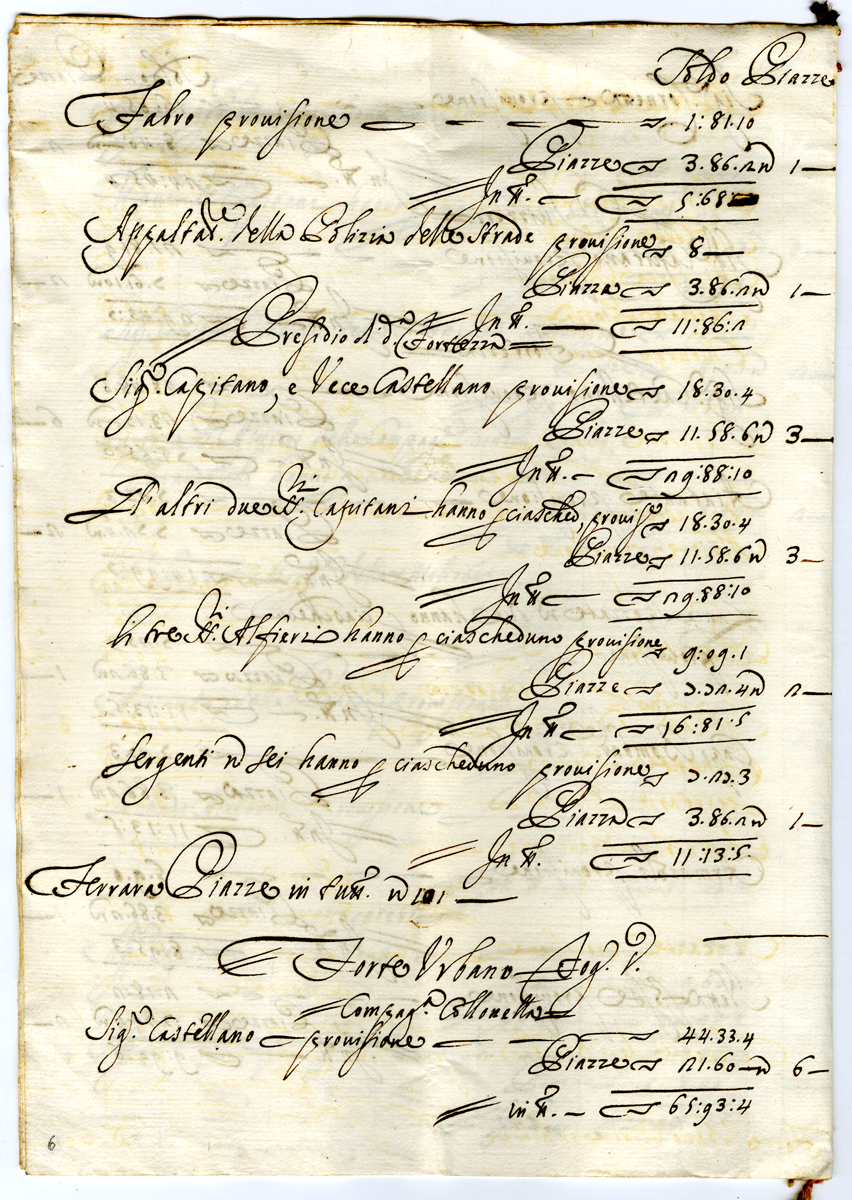 Soldo Piazze
Fabro provisione — — — — — ∆ 1:81.10
Piazze ∆ 3.86.2 nº 1 —
In tt.º — ∆ 5:68
Appaltat.re della Polizia delle Strade provisione ∆ 8 —
Piazza ∆ 3.86.2 nº 1 —
In tt.º — ∆ 11:86:2
Presidio di d.ª Fortezza
Sig.r Capitano, e Vece Castellano provisione ∆ 18.30.4
Piazze ∆ 11.58.6 nº 3 —
In tt.º — ∆ 29:88:10
Gl'altri due SS.ri Capitani hanno p ciasched. provis.e ∆ 18.30.4
Piazze ∆ 11.58.6 nº 3 —
In tt.º — ∆ 29:88:10
li tre SS.ri Alfieri hanno p ciascheduno provisione ∆ 9:09.1
Piazze ∆ 7.72.4 nº 2 —
In tt.º — ∆ 16:81:5
Sergenti nº sei hanno p ciascheduno provisione ∆ 7.27.3
Piazza ∆ 3.86.2 nº 1 —
In tt.º ∆ 11:13:5.
Ferrara Piazze in tutt.º nº 101 —
Forte Urbano Fog. V.
Compag.ª Collonella
Sig.r Castellano — provisione — — — ∆ 44.33.4
Piazze ∆ 21.60 — nº 6 —
in tt.º — ∆ 65:93:4
6